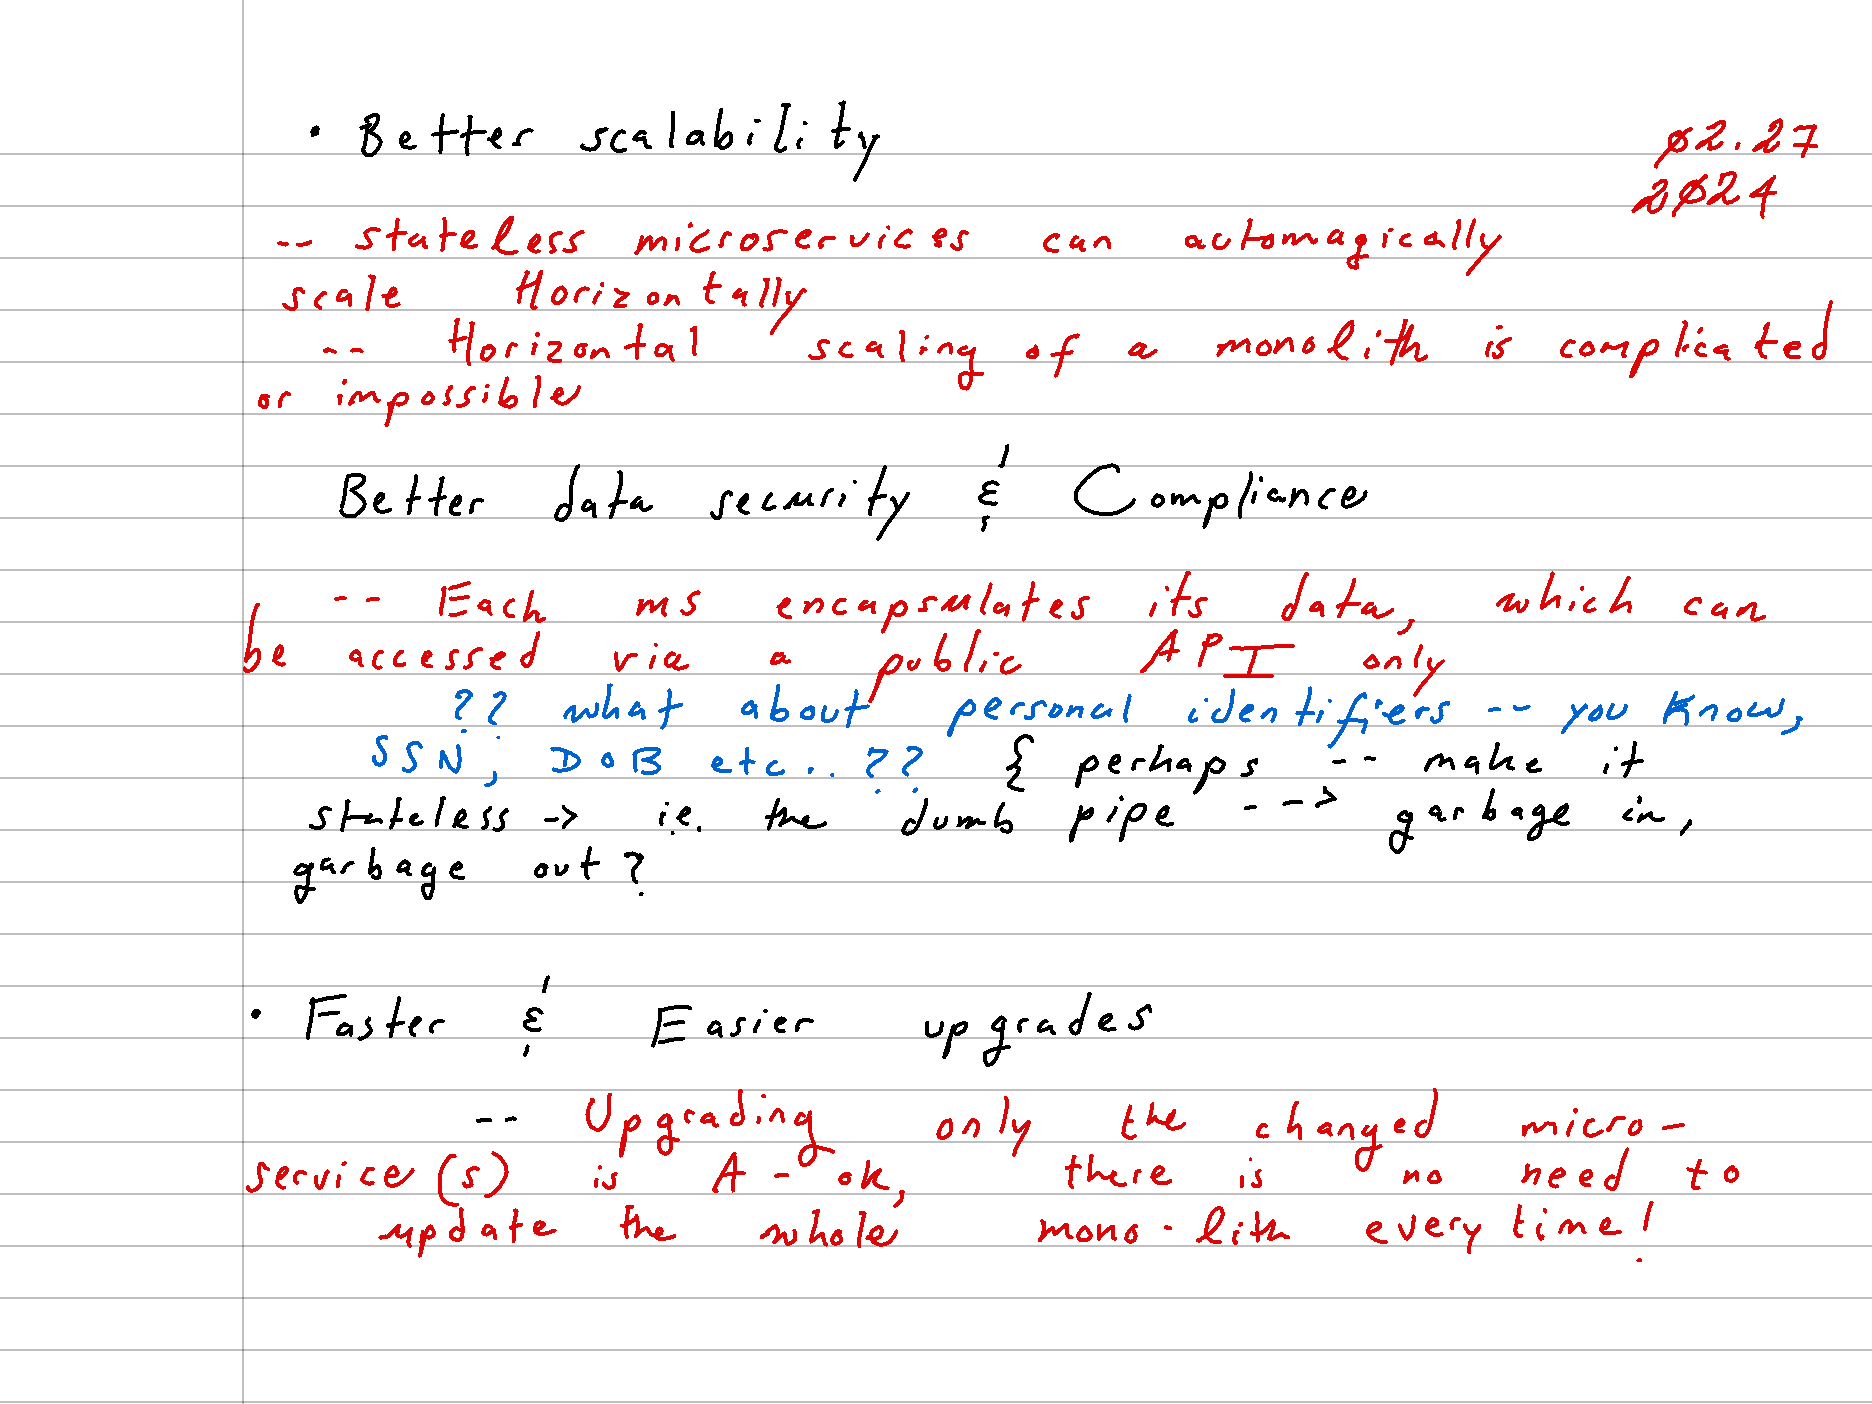 • Better scalability
ø2.27
2ø24
-- stateless microservices can automagically
scale Horizontally
-- Horizontal scaling of a monolith is complicated
or impossible
Better data security & Compliance
-- Each ms encapsulates its data, which can
be accessed via a public API only
?? what about personal identifiers -- you know,
SSN, DOB etc... ?? { perhaps -- make it
stateless -> i.e. the dumb pipe ---> garbage in,
garbage out?
• Faster & Easier upgrades
-- Upgrading only the changed micro-
service(s) is A-ok, there is no need to
update the whole mono-lith every time!